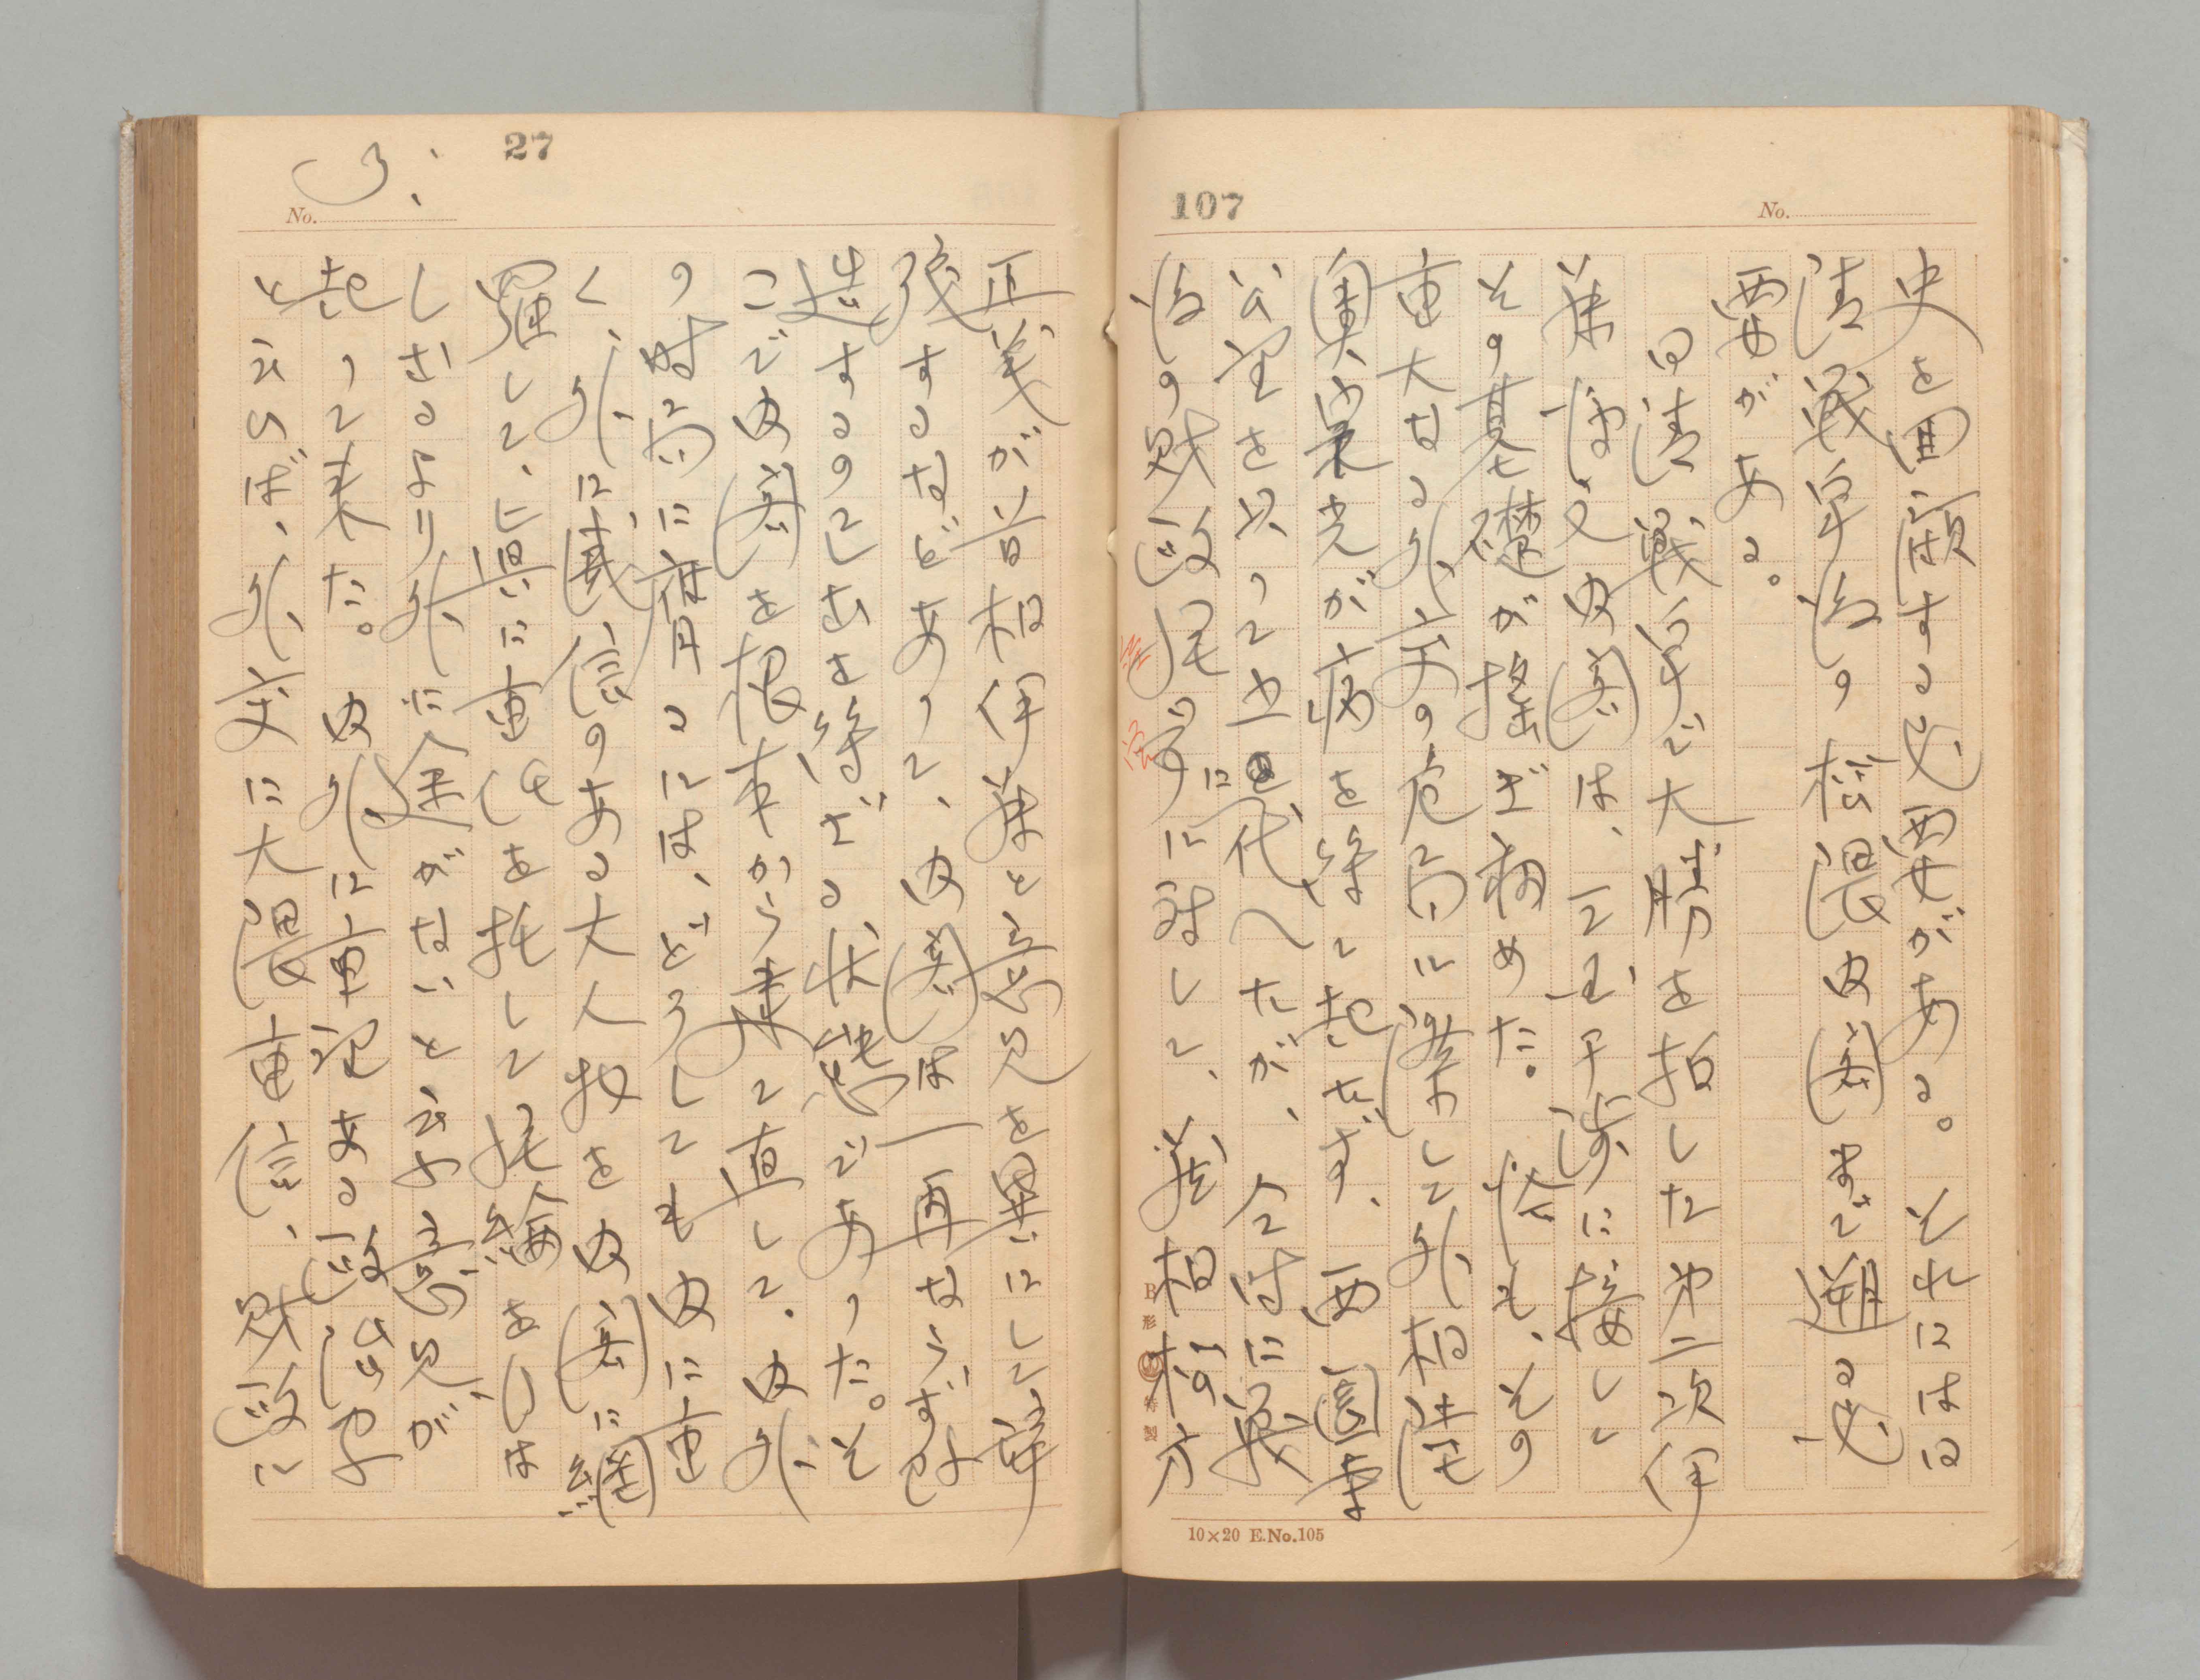 107
No.
史を回顧する必要がある。それには日
清戦争後の松隈内閣まで遡る必
要がある。
日清戦争で大勝を拍した第二次伊
藤博文内閣は、三国干渉に接して
その基礎が揺ぎ初めた。恰も、その
重大なる外交の危局に際して外相陸
奥宗光が病を得て起たず、西園寺
公望を以って之に代へたが、今時に戦
後の財政処理に対して、蔵相松方
10×20 E.No.105
27
3.
No.
正義が首相伊藤と意見を異にして辞
職するなどあって、内閣は一再ならず改
造するの止む得ざる状態であった。そ
こで内閣を根本から建て直して、内外
の時局に膺るには、どうしても内に重
く、外に威信のある大人物を内閣に網
羅して、真に重任を托して経綸を行は
しむるより外に途がないと云ふ意見が
起って来た。内外に重望ある政治家
と云へば、外交に大隈重信、財政に